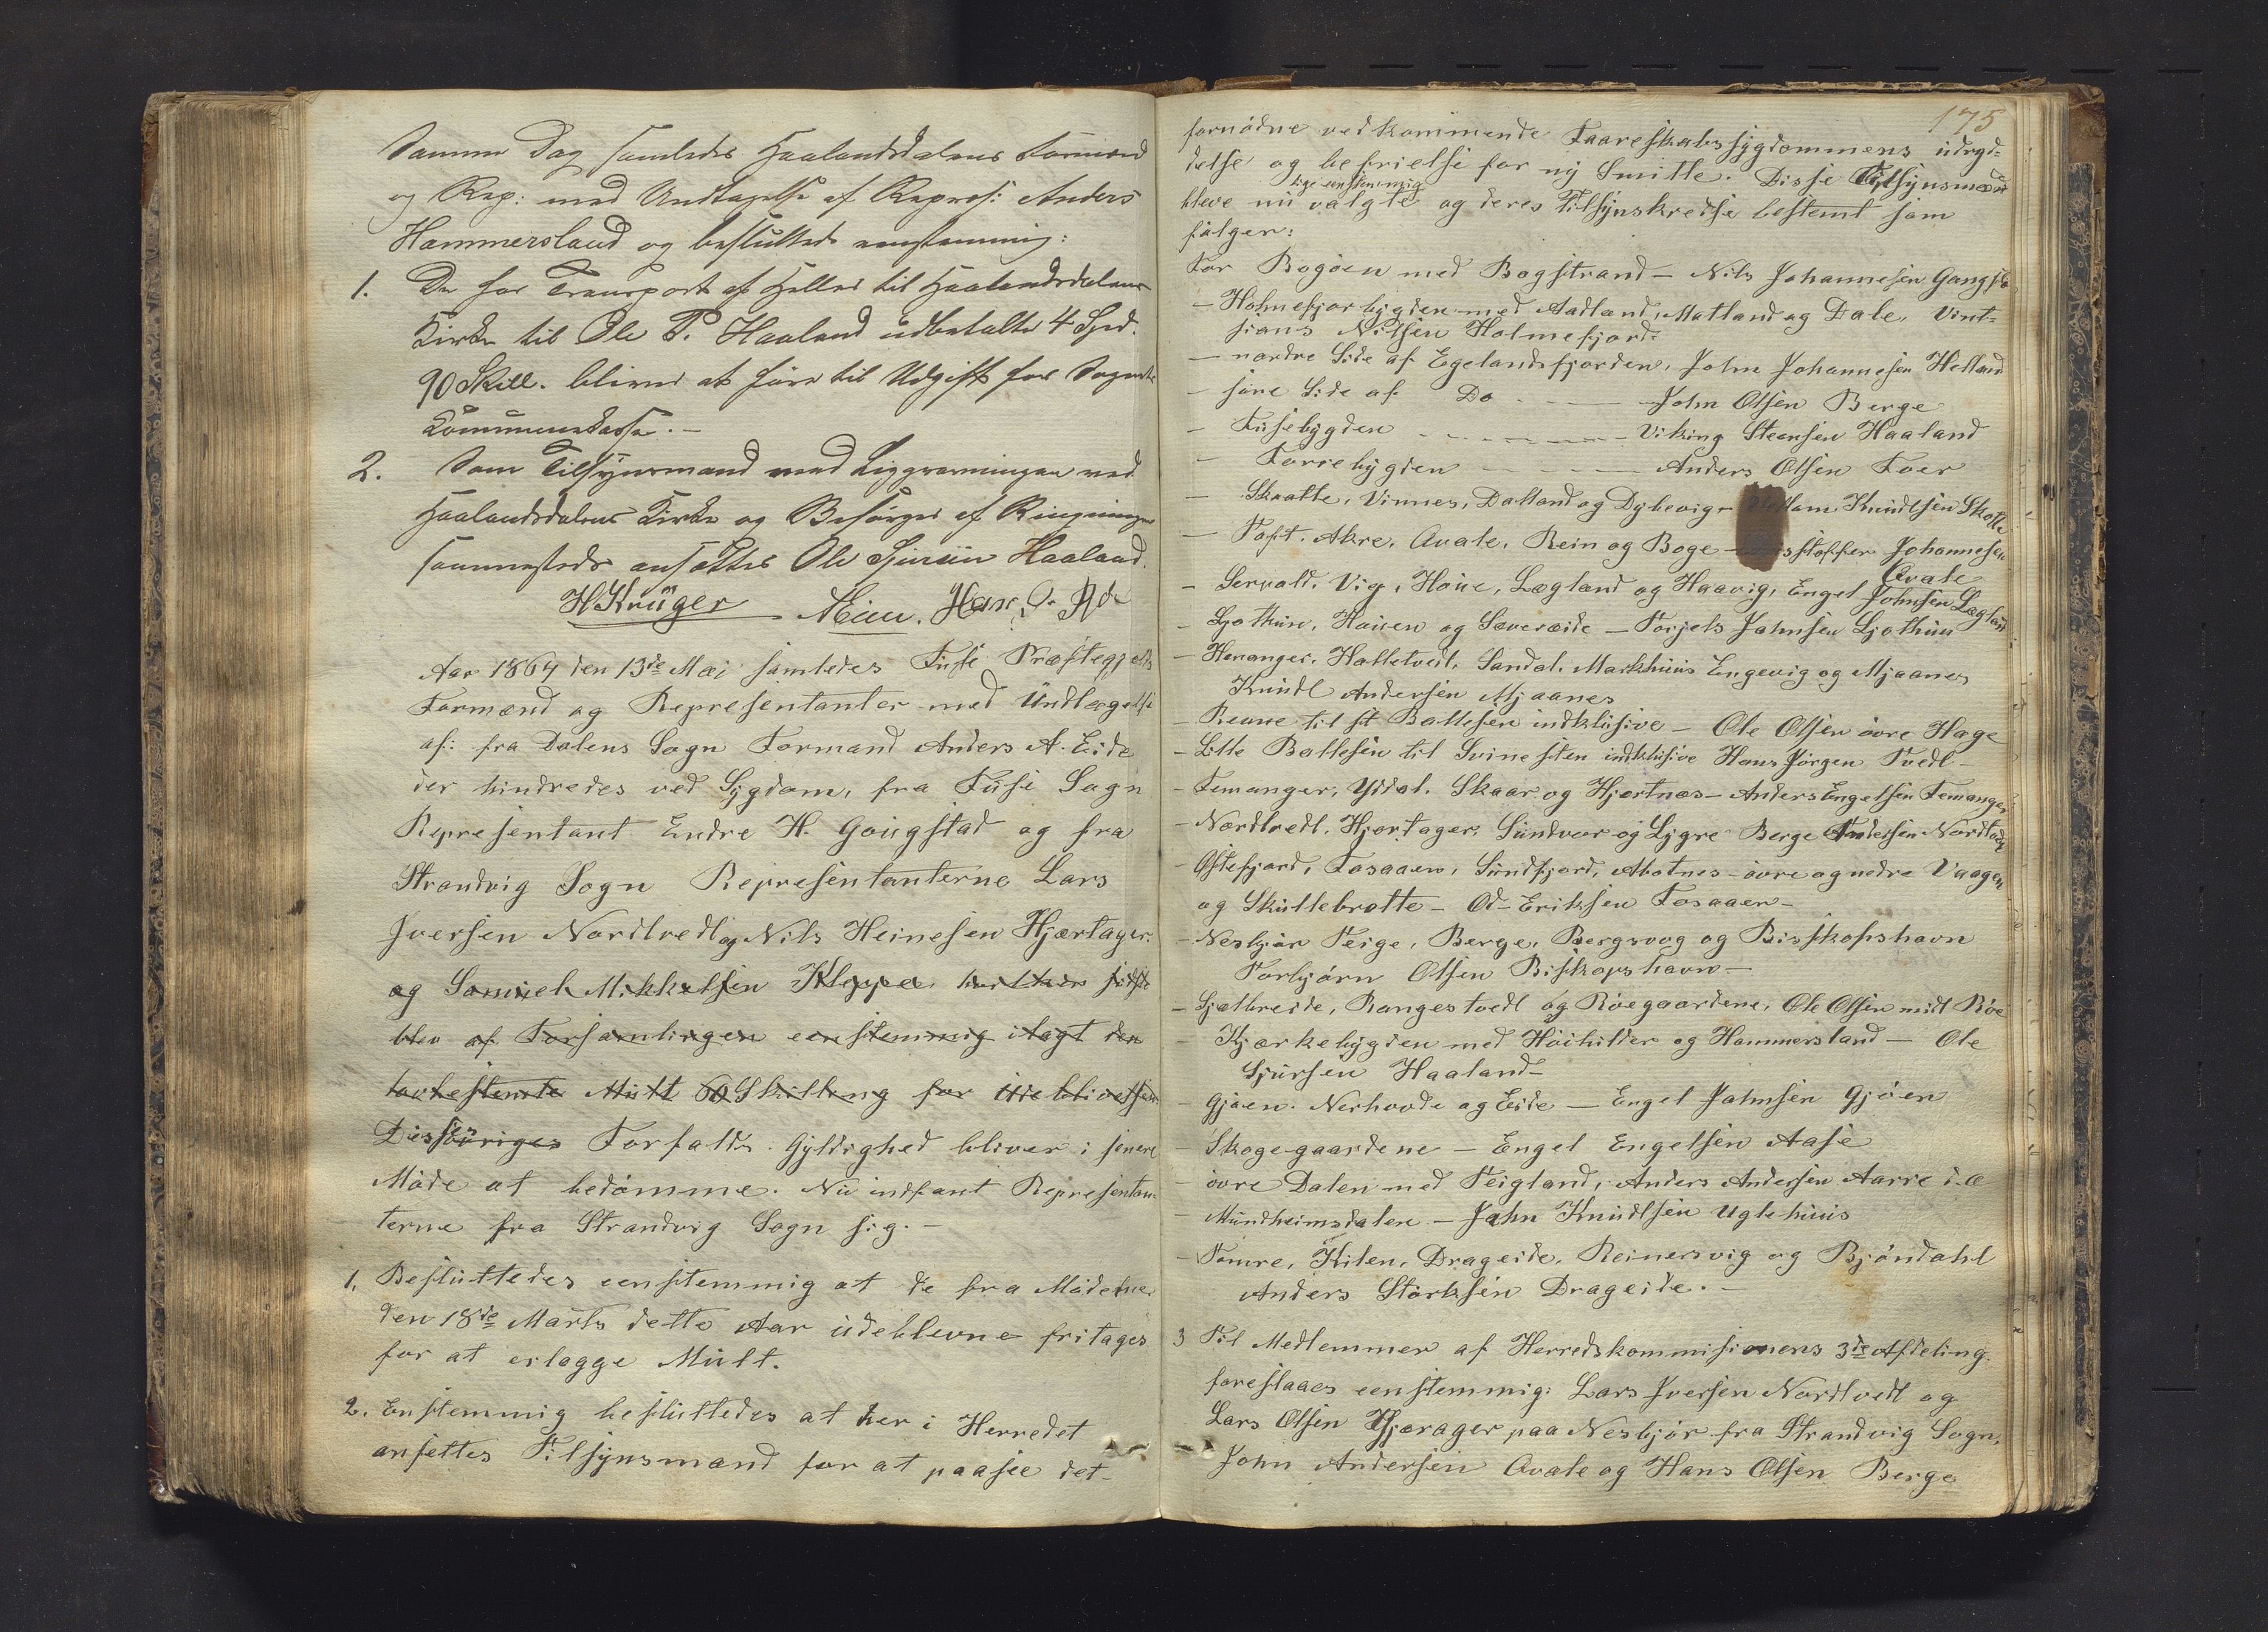 Samme Dag samledes Haalandsdalens Formænd
og Rep: med Undtagelse af Repræs: Anders
Hammersland og besluttede eenstemmig:
1. De for Transport af Heller til Haalandsdalens
Kirke til Ole P. Haaland udbetalte 4 Spd.
90 Skill. bliver at före til Udgift for Sognets
Kommunekasse.—
2. Som Tilsynsmand med Liggravningen ved
Haalandsdalens Kirke og Besörger af Ringningen
sammesteds ansattes Ole Sjursen Haaland.
H Krüger
Aar 1864 den 13de Mai samledes Fuse Præstegjelds
Formænd og Representanter med Undtagelse
af: fra Dalens Sogn Formand Anders A. Eide
der hindredes ved Sygdom, fra Fuse Sogn
Representant Endre H. Goügstad og fra
Strandvig Sogn Representanterne Lars
Iversen Nordtvedt og Nils Heinesen Hjærtager.
og Samuel Mikkelsen Kleppe. hvilken sidste
blev af Forsamlingen eenstemmig ilagt den
lovbestemte Mult 60 Skilling for Udeblivelsen
Disses övriges Forfalds Gyldighed bliver i senere
Möde at bedömme. Nu indfant Representan-
terne fra Strandvig Sogn sig.—
1. Besluttedes eenstemmig at de fra Mödet
den 18de Marts dette Aar udeblevne fritages
for at erlægge Mult.
2. Enstemmig besluttedes at her i Herredet
ansettes Tilsynsmænd for at paasee det-
175
fornödne vedkommende Faareskabssygdommens udryd-
delse og befrielse for ny Smitte. Disse Tilsynsmænd
lige eenstemmig
bleve nu valgte og deres Tilsynskredse bestemt som
fölger:
For Bogöen med Bogstrand — Nils Johannesen
— Holmefjorbygden med Aadland, Matland og Dale, Vint-
sians Nilsen Holmefjord
— nordre Side af Egelandsfjorden, John Johannesen Helland
— söre Side af Do — John Olsen Berge
— Fusebygden — Viking Steensen Haaland
— Forrebygden — Anders Olsen Foer
— Skaatte, Vinnes, Dalland og Dybevig — Knudtsen Skotte
— Toft, Akre, Avale, Rein og Boge — Johannesen
Avale
— Servold, Vig, Höue, Lægland og Haavig, Engel Johnsen Lægland
— Ljothun, Houen og Sævereide — Torjels Johnsen Ljothun
— Henanger, Halletvedt, Sandal, Markhuus Engevig og Mjaanes
Knudt Andersen Mjaanes
— Revne til st Baltesen indklusive — Ole Olsen övre Hage
— Litle Baltesen til Svinesten indklusive Hans Jörgen Tvedt —
— Femanger, Yddal, Skaar og Hjortnæs — Anders Engelsen Femanger
— Nordtvedt, Hjortager, Sundvor og Lygre Berge Andersen Nordtvedt
— Östefjord, Fosaaen, Sundfjord, Abotnes övre og nedre Vaagen
og Skullebrotte — Od- Eriksen Fosaaen —
— Nesbjör Teige, Berge, Bergsvog og Bisskopshavn
Torbjörn Olsen Biskopshavn —
— Sjælbreide, Rangestvedt og Röegaardene, Ole Olsen midt Röe
— Kjærkebygden med Höihilder og Hammersland — Ole
Sjursen Haaland —
— Gjöen, Nerhovde og Eide — Engel Johnsen Gjöen
— Skoge-gaardene — Engel Engelsen Aase
— övre Dalen med Teigland, Anders Andersen Aarre d. æ
— Mundheimsdalen — John Knudtsen Uglehuus
— Tomre, Kilen, Drageide, Reinersvig og Bjöndahl
Anders Störksen Drageide.—
3 Til Medlemmer af Herredskommisionens 3de Afdeling.
foreslaaes eenstemmig: Lars Iversen Nordtvedt og
Lars Olsen Hjærager paa Nesbjör fra Strandvig Sogn,
John Andersen Avale og Hans Olsen Berge